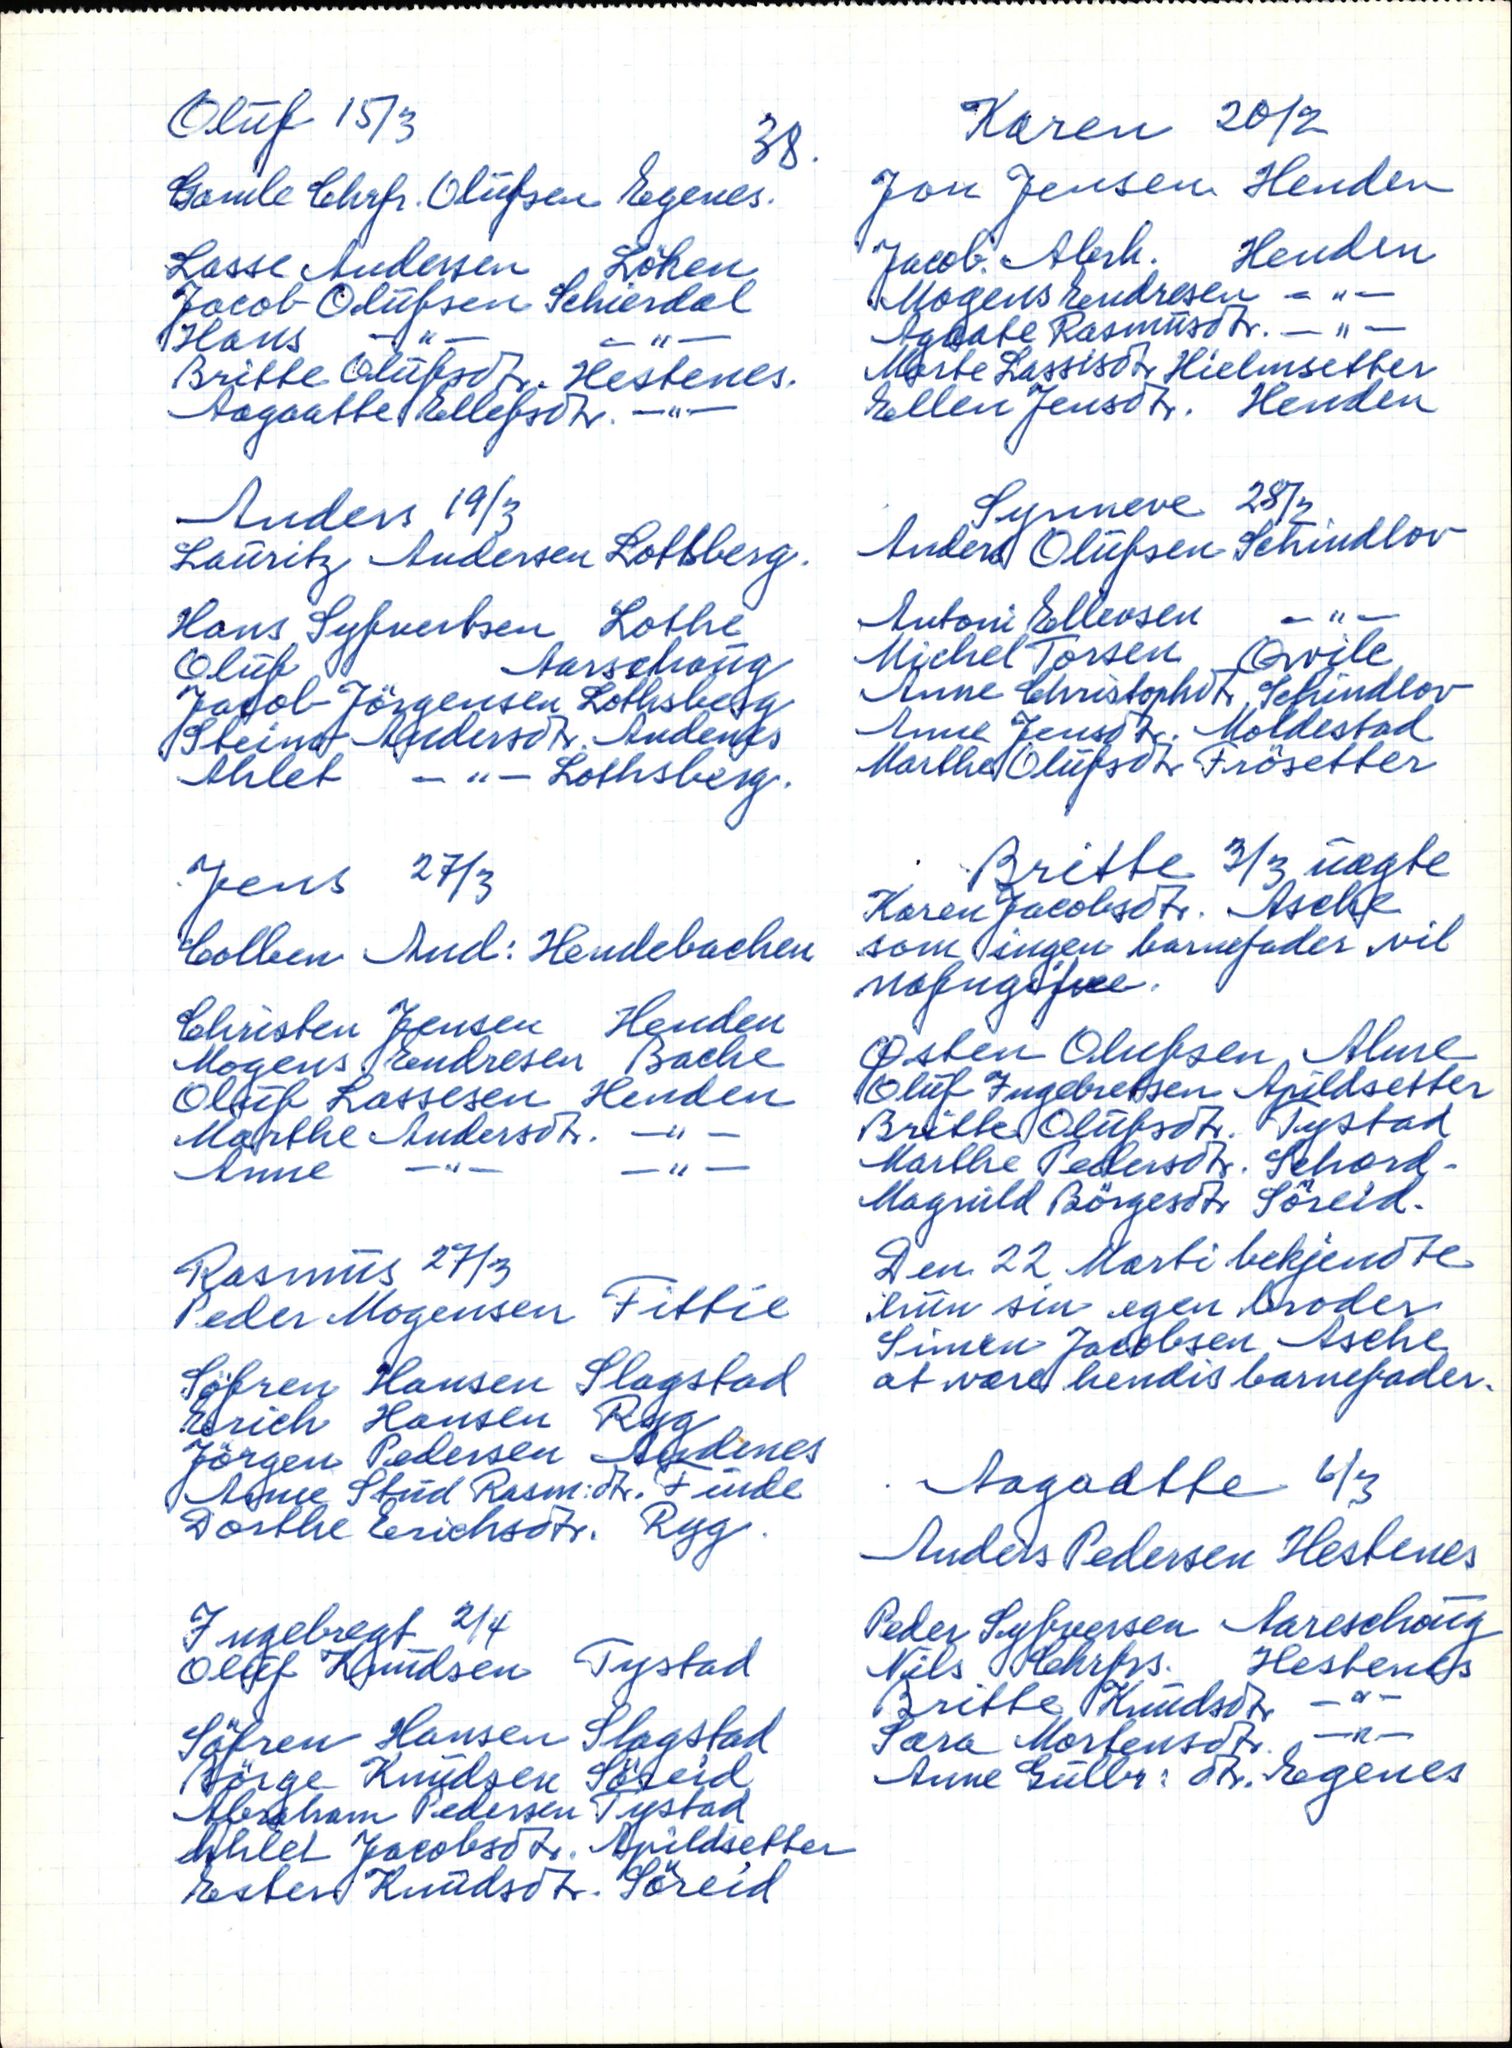 38.
Oluf 15/3
Gamle Chrfr. Olufsen Egenes.
Lasse Andersen Löken
Jacob Olufsen Schierdal
Hans -"- -"-
Britte Olufsdtr. Hestenes.
Aagaatte Ellefsdtr. -"-
Anders 19/3
Lauritz Andersen Lothsberg.
Hans Syfvertsen Lothe
Oluf Aarschoug
Jacob Jörgensen Lothsberg
Andersdtr. Andenes
Ahlet -"- Lothsberg.
Jens 27/3
Colben And: Hendebachen
Christen Jensen Henden
Mogens Endresen Bache
Oluf Lassesen Henden
Marthe Andersdtr. -"-
Anne -"- -"-
Rasmus 27/3
Peder Mogensen Fittie
Söfren Hansen Slagstad
Erich Hansen Ryg
Jörgen Pedersen Andenes
Anne Stud Rasm:dtr. Funde
Dorthe Erichsdtr. Ryg.
Ingebregt 2/4
Oluf Knudsen Tystad
Söfren Hansen Slagstad
Börge Knudsen Söreid
Abraham Pedersen Tystad
Ahlet Jacobsdtr. Apildsetter
Ester Knudsdtr. Söreid
Karen 20/2
Jon Jensen Henden
Jacob Abrh. Henden
Mogens Endresen -"-
Agaate Rasmusdtr. -"-
Marte Lassisdtr Hielmsetter
Ellen Jensdtr. Henden
Synneve 28/2
Anders Olufsen Schindlov
Antoni Ellevsen -"-
Michel Torsen Qvile
Anne Christophdtr Schindlov
Anne Jensdtr. Moldestad
Marthe Olufsdtr Frösetter
Britte 3/3 uægte
Karen Jacobsdtr. Asche
som ingen barnefader vil
Østen Olufsen Alme
Oluf Ingebretsen Apildsetter
Britte Olufsdtr. Tystad
Marthe Pedersdtr. Schord-
Magnild Börgesdtr Söreid.
Den 22 Marti bekjendte
hun sin egen broder
Simen Jacobsen Asche
at være hendis barnefader.
Aagaatte 6/3
Anders Pedersen Hestenes
Peder Syfversen Aareschoug
Nils Chrfrs. Hestenes
Britte Knudsdtr -"-
Sara Mortensdtr. -"-
Anne Gulbr: dtr. Egenes